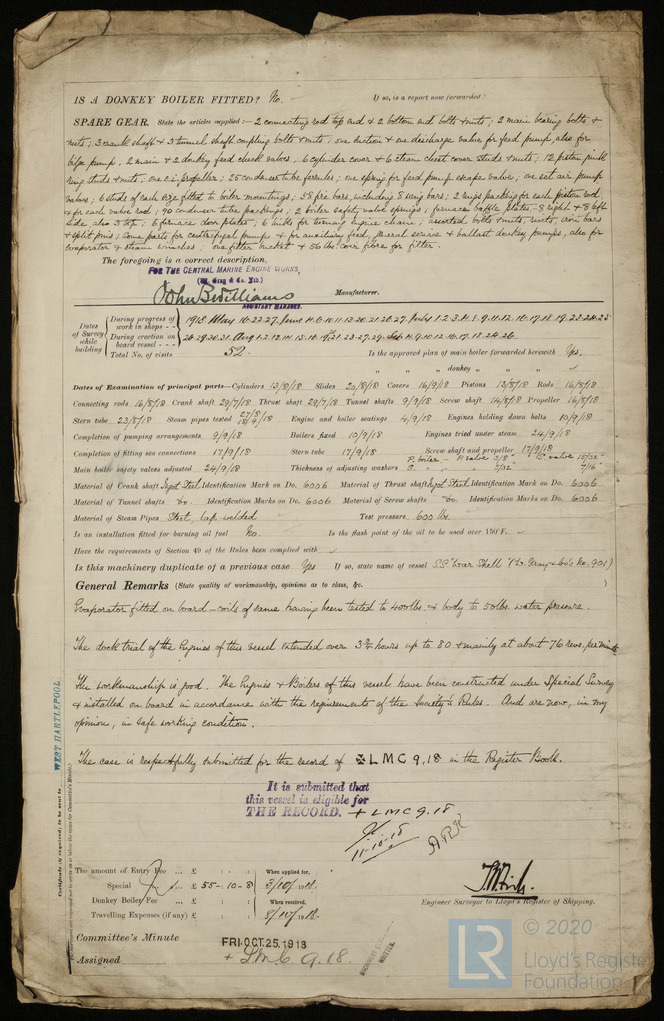 IS A DONKEY BOILER FITTED? No. If so, is a report now forwarded?
SPARE GEAR. State the articles supplied:— 2 connecting rod top end & 2 bottom end bolts & nuts; 2 main bearing bolts &
nuts; 3 crank shaft & 3 tunnel shaft coupling bolts & nuts; one suction & one discharge valve for feed pump, also for
bilge pump; 2 main & 2 donkey feed check valves; 6 cylinder cover & 6 steam chest cover studs & nuts; 12 piston junk
ring studs & nuts; one propeller; 25 condenser tube ferrules; one spring for feed pump escape valve; one set air pump
valves; 6 studs of each size fitted to boiler mountings; 58 fire bars, including 8 wing bars; 2 rings packing for each piston rod
& for each valve rod; 90 condenser tube packings; 2 boiler safety valve springs; furnace baffle plates - 8 right & 8 left
side, also 3 top; 6 furnace door plates; 6 links for turning engine chain; assorted bolts & nuts, rivets, iron bars
& split pins; some parts for centrifugal pump & for auxiliary feed, general service & ballast donkey pumps, also for
evaporator & steam winches; one filter bucket & 56 lbs. coir fibre for filter.
The foregoing is a correct description,
FOR THE CENTRAL MARINE ENGINE WORKS,
(W. Gray & Co. Ltd.)
John B Williams Manufacturer.
ASSISTANT MANAGER.
Dates of Survey while building
During progress of work in shops - - 1918 May 10.22.27. June
During erection on board vessel - - - Aug
Total No. of visits 52. Is the approved plan of main boiler forwarded herewith Yes.
" " " donkey " " "
Dates of Examination of principal parts—Cylinders 13/8/18 Slides 20/8/18 Covers 16/9/18 Pistons 13/8/18 Rods 16/8/18
Connecting rods 16/8/18 Crank shaft 29/7/18 Thrust shaft 29/7/18 Tunnel shafts 9/9/18 Screw shaft 14/8/18 Propeller 16/8/18
Stern tube 23/8/18 Steam pipes tested 27/8/18 Engine and boiler seatings 4/9/18 Engines holding down bolts 10/9/18
Completion of pumping arrangements 9/9/18 Boilers fixed 10/9/18 Engines tried under steam 24/9/18
Completion of fitting sea connections 17/9/18 Stern tube 17/9/18 Screw shaft and propeller 17/9/18
Main boiler safety valves adjusted 24/9/18 Thickness of adjusting washers P. boiler - P. valve 3/8" S. valve 15/32"
S. " " 7/32" 7/16"
Material of Crank shaft Ingot Steel Identification Mark on Do. 6006 Material of Thrust shaft Ingot Steel Identification Mark on Do. 6006
Material of Tunnel shafts Do. Identification Marks on Do. 6006 Material of Screw shafts Do. Identification Marks on Do. 6006
Material of Steam Pipes Steel, lap-welded Test pressure 600 lbs.
Is an installation fitted for burning oil fuel No. Is the flash point of the oil to be used over 150°F.
Have the requirements of Section 49 of the Rules been complied with
Is this machinery duplicate of a previous case Yes If so, state name of vessel S.S. "War Shell" (W. Gray & Co's No. 901)
General Remarks (State quality of workmanship, opinions as to class, &c.
Evaporator fitted on board - coils of same having been tested to 400 lbs. & body to 50 lbs. water pressure.
The dock trial of the Engines of this vessel extended over 3¾ hours up to 80 & mainly at about 76 revs. per minute
The workmanship is good. The Engines & Boilers of this vessel have been constructed under Special Survey
& installed on board in accordance with the requirements of the Society's Rules. And are now, in my
opinion, in safe working condition.
The case is respectfully submitted for the record of ✠ LMC 9.18 in the Register Book.
It is submitted that
this vessel is eligible for
THE RECORD. + LMC 9.18
11-10-18
WEST HARTLEPOOL
The amount of Entry Fee ... £ : : When applied for,
Special ... £ 55 - 10 - 8 3/10/1918.
Donkey Boiler Fee ... £ : : When received,
Travelling Expenses (if any) £ : : 8/10/1918.
Engineer Surveyor to Lloyd's Register of Shipping.
Committee's Minute FRI. OCT. 25. 1918
Assigned + LMC 9.18.
MACHINERY CERTIFICATE WRITTEN.
LR © 2020
Lloyd's Register
Foundation